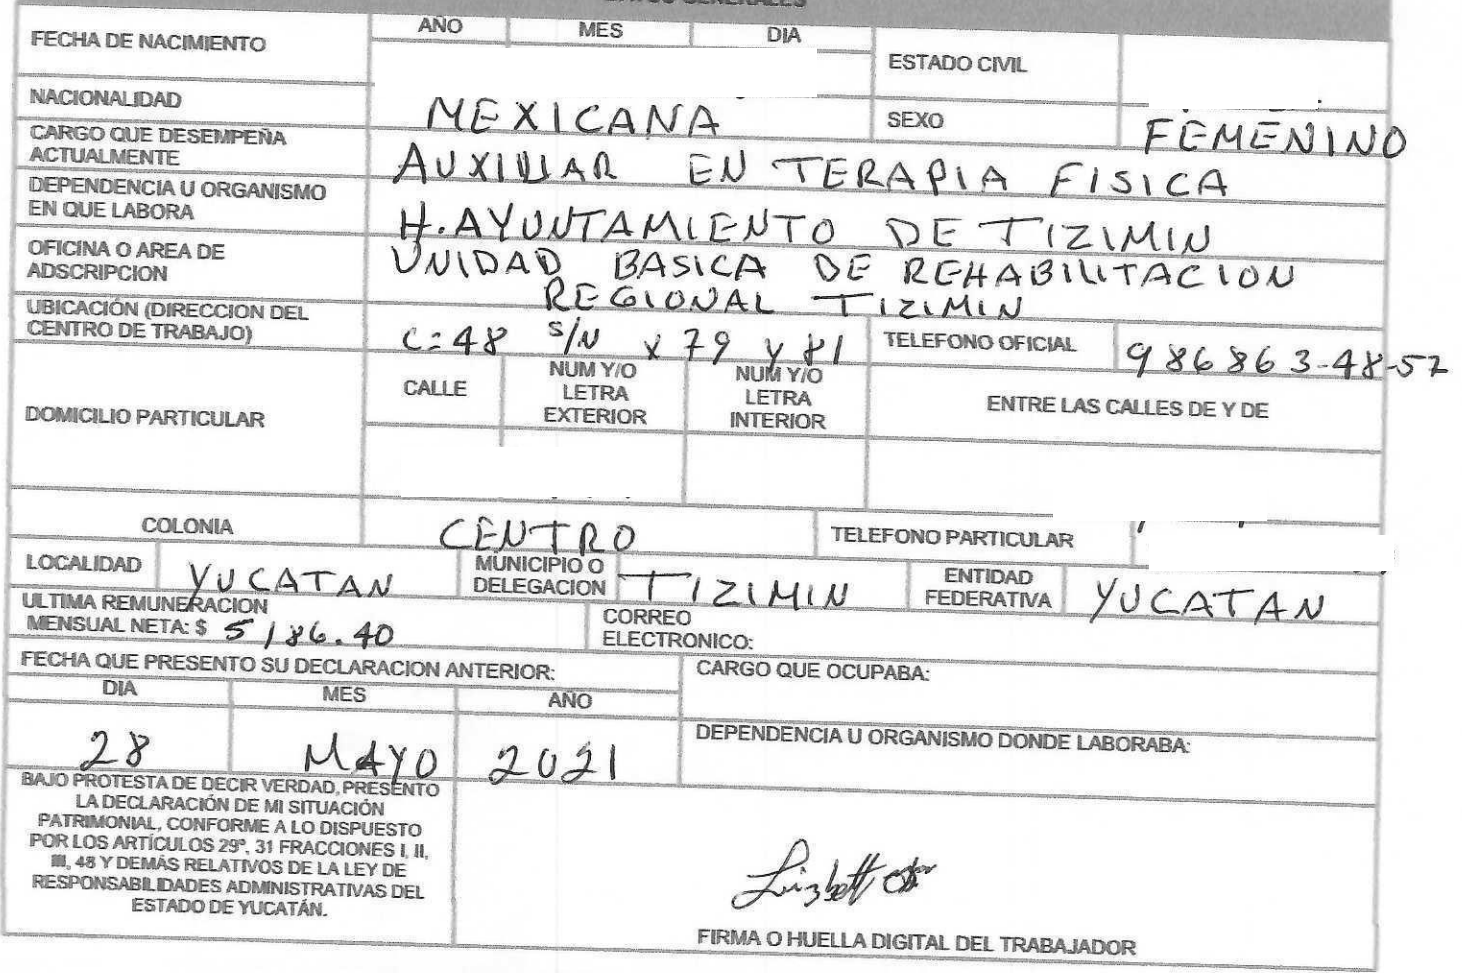 FECHA DE NACIMIENTO
AÑO MES DIA
ESTADO CIVIL
NACIONALIDAD MEXICANA
SEXO FEMENINO
CARGO QUE DESEMPEÑA
ACTUALMENTE
AUXILIAR EN TERAPIA FISICA
DEPENDENCIA U ORGANISMO
EN QUE LABORA
H. AYUNTAMIENTO DE TIZIMIN
OFICINA O AREA DE
ADSCRIPCION
UNIDAD BASICA DE REHABILITACION
REGIONAL TIZIMIN
UBICACIÓN (DIRECCION DEL
CENTRO DE TRABAJO)
C=48 S/N x 79 y 81
TELEFONO OFICIAL 986863-48-52
DOMICILIO PARTICULAR
CALLE
NUM Y/O
LETRA
EXTERIOR
NUM Y/O
LETRA
INTERIOR
ENTRE LAS CALLES DE Y DE
COLONIA CENTRO
TELEFONO PARTICULAR
LOCALIDAD YUCATAN
MUNICIPIO O
DELEGACION
TIZIMIN
ENTIDAD
FEDERATIVA
YUCATAN
ULTIMA REMUNERACION
MENSUAL NETA: $ 5186.40
CORREO
ELECTRONICO:
FECHA QUE PRESENTO SU DECLARACION ANTERIOR:
CARGO QUE OCUPABA:
DIA MES AÑO
28 MAYO 2021
DEPENDENCIA U ORGANISMO DONDE LABORABA:
BAJO PROTESTA DE DECIR VERDAD, PRESENTO
LA DECLARACIÓN DE MI SITUACIÓN
PATRIMONIAL, CONFORME A LO DISPUESTO
POR LOS ARTÍCULOS 29º, 31 FRACCIONES I, II,
III, 48 Y DEMÁS RELATIVOS DE LA LEY DE
RESPONSABILIDADES ADMINISTRATIVAS DEL
ESTADO DE YUCATÁN.
FIRMA O HUELLA DIGITAL DEL TRABAJADOR